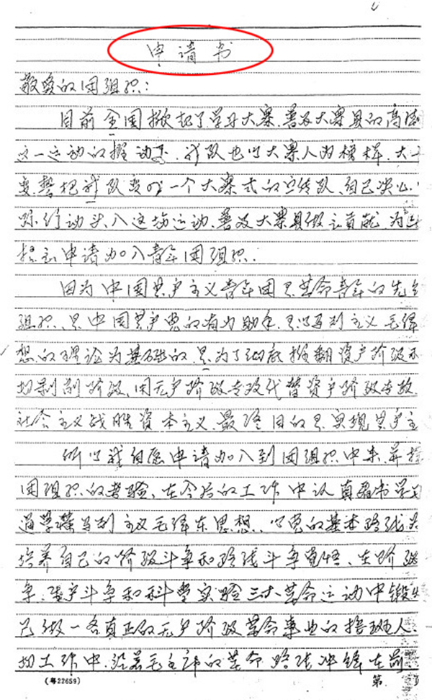 申请书
敬爱的团组织:
目前全国掀起了学习大寨、普及大寨县的高潮
这一运动的推动下,我队也以大寨人为榜样,大
要把我队变成一个大寨式的队,自己决心
行动投入这场运动、普及大寨县做出贡献,为此
提出申请加入青年团组织.
因为中国共产主义青年团是革命青年的先
组织、是中国共产党的有力助手、是以马列主义毛泽
想的理论为基础的、是为了彻底推翻资产阶级和
切剥削阶级、用无产阶级专政代替资产阶级专政
社会主义战胜资本主义、最终目的是实现共产主
所以我自愿申请加入到团组织中来、并接
团组织的考验、在今后的工作中认真看书学习
马列主义毛泽东思想、以党的基本路线
培养自己的阶级斗争和路线斗争觉悟、在阶级
争、生产斗争和科学实验三大革命运动中锻
己做一名真正的无产阶级革命事业的接班人
切工作中、沿着毛主席的革命路线冲锋在前
(粤22659)
第